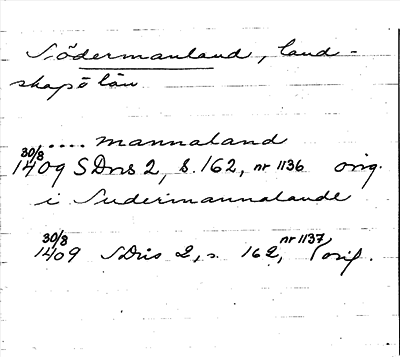 Södermanland, land-
skap o län
.... mannaland
30/8 1409 SDns 2, s. 162, nr 1136 orig.
i Sudermannalande
30/8 1409 SDns 2, s. 162, nr 1137, orig.